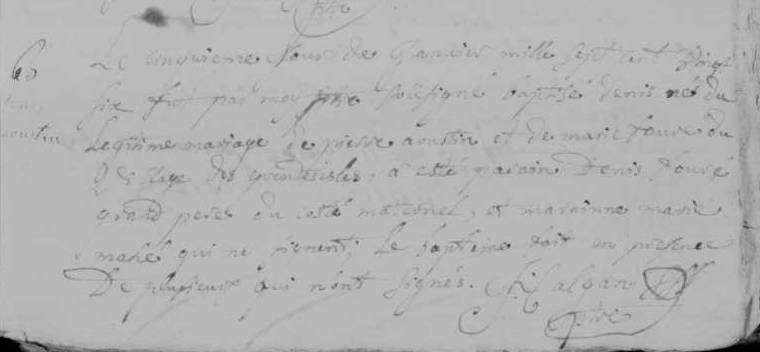 ptre
Le cinquieme Jour de Janvier mille sept cent vingt
six fut par moy ptre soussigné baptisé denis né du
Legitime mariage de pierre aoustin et de marie foure du
des grandesisles, a esté parain Denis fouré
grand pere du costé maternel, et marainne marie
mahé qui ne signent, Le bapteme fait en presence
De plusieurs qui n'ont signés.
ptre